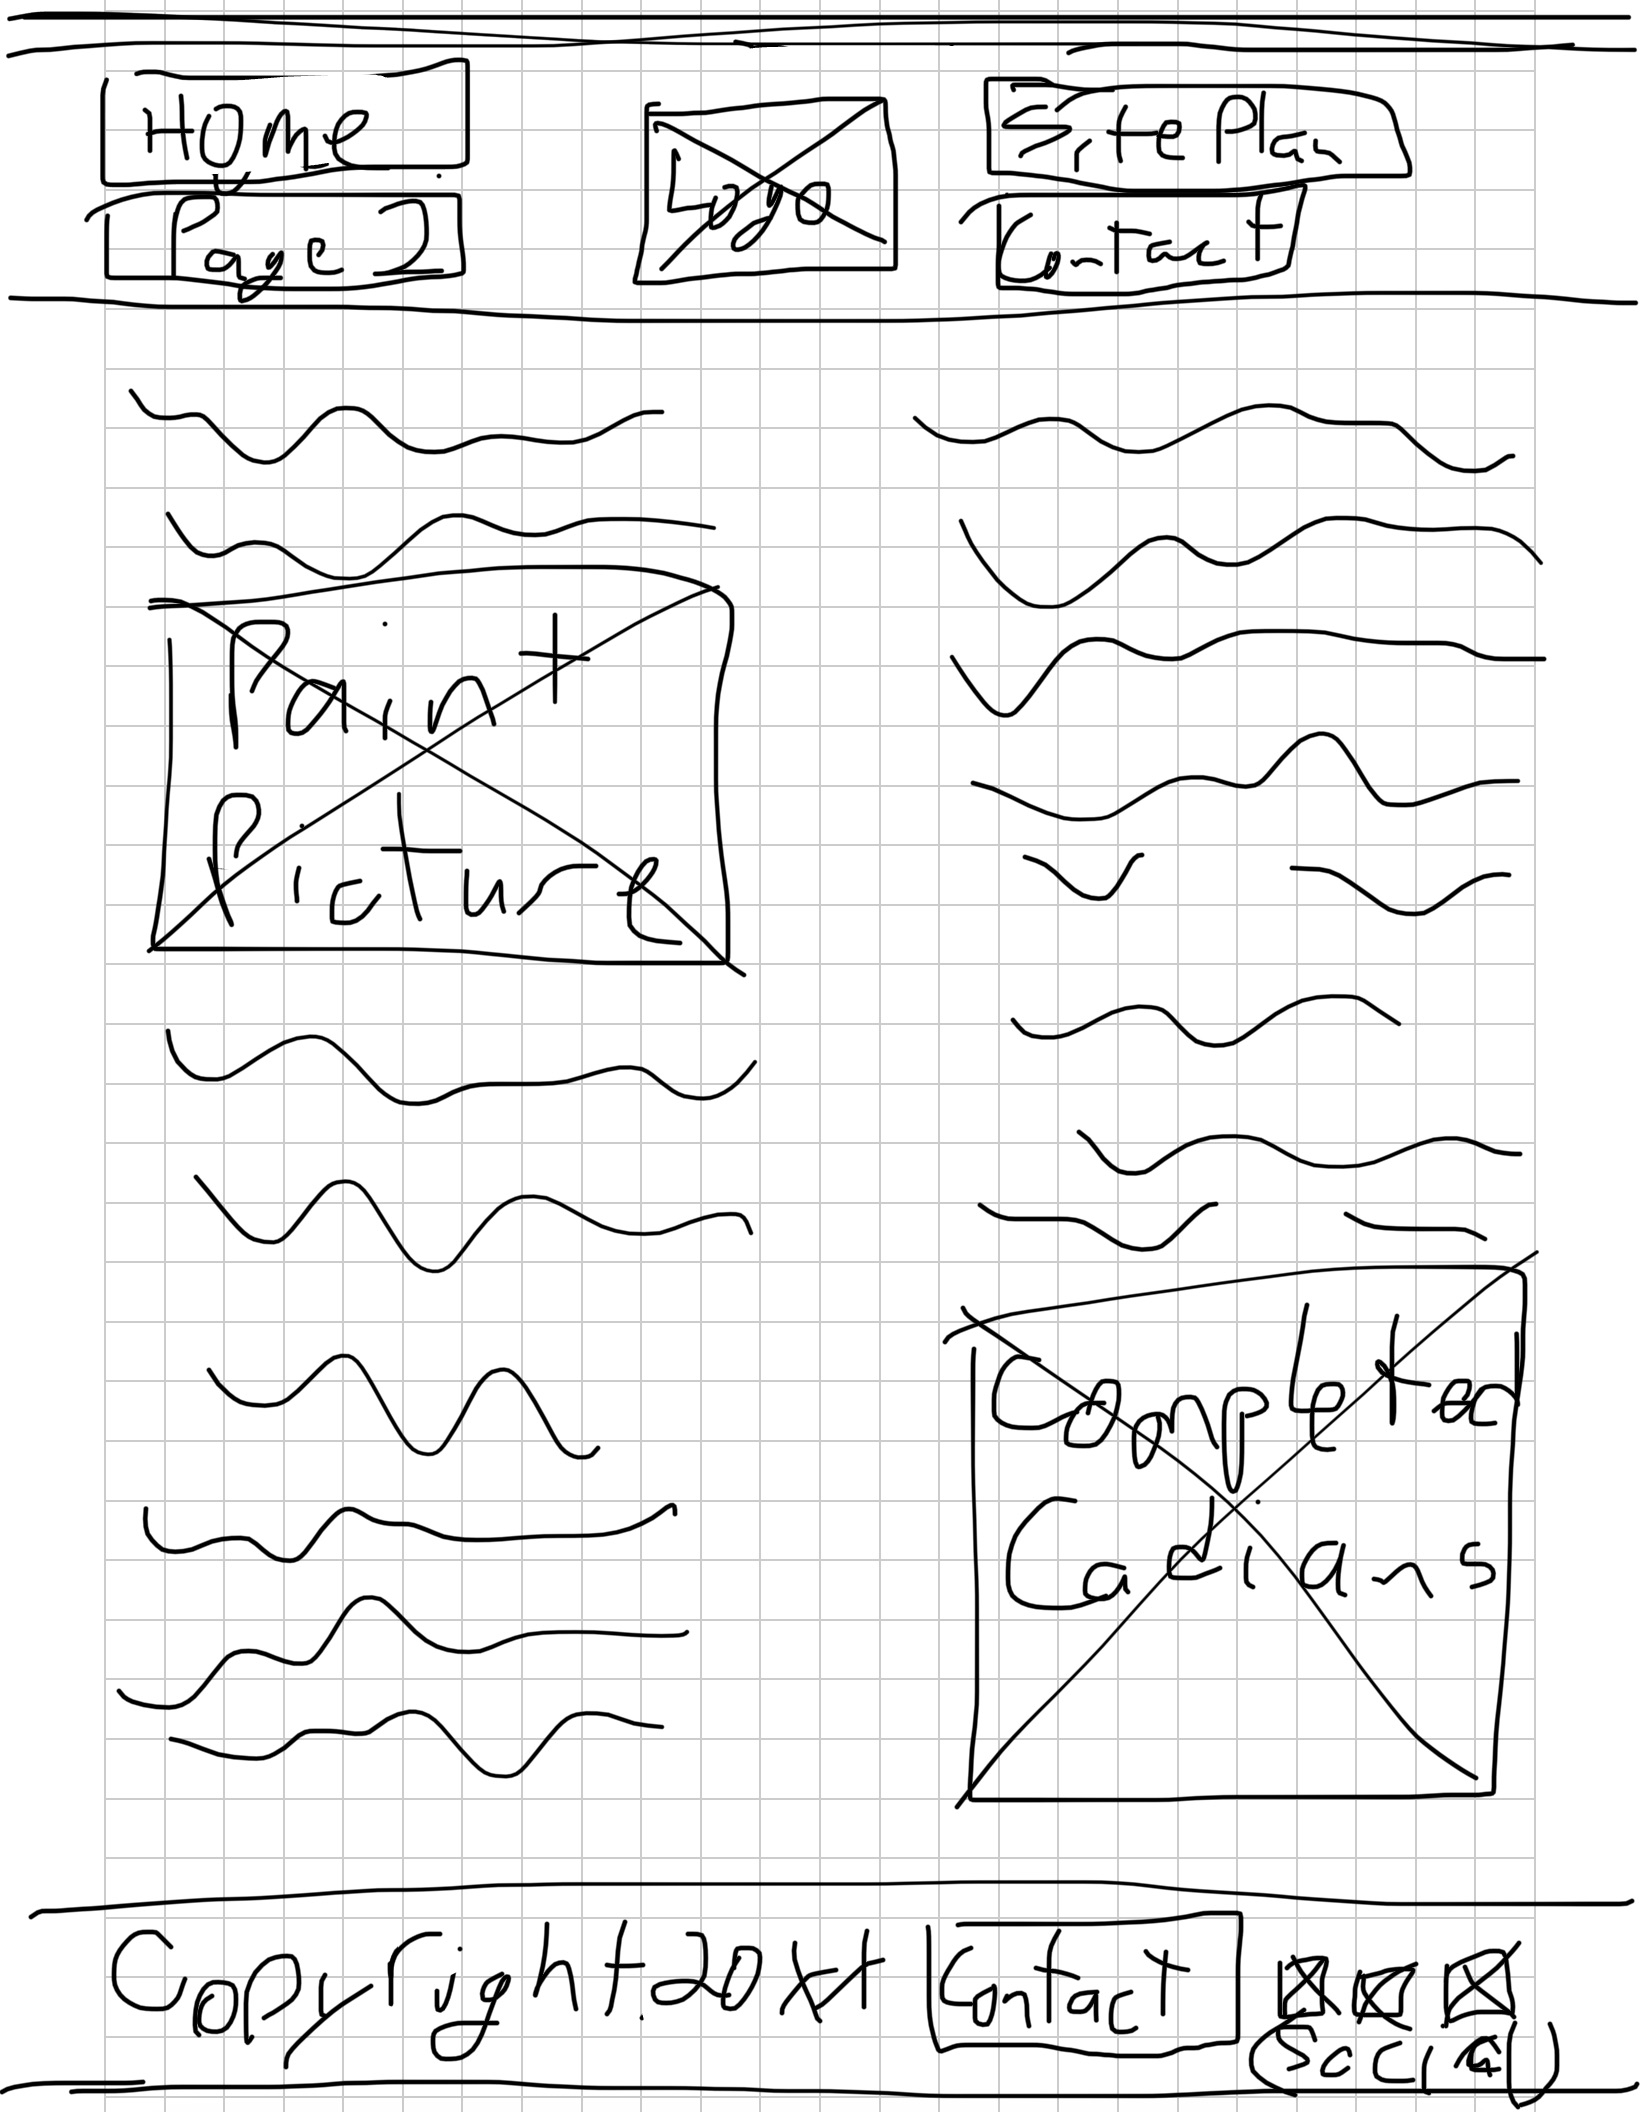 Home
Page 2
Logo
Site Plan
Contact
Paint
Picture
Completed
Cadians
Copyright 20
Contact
(Social)